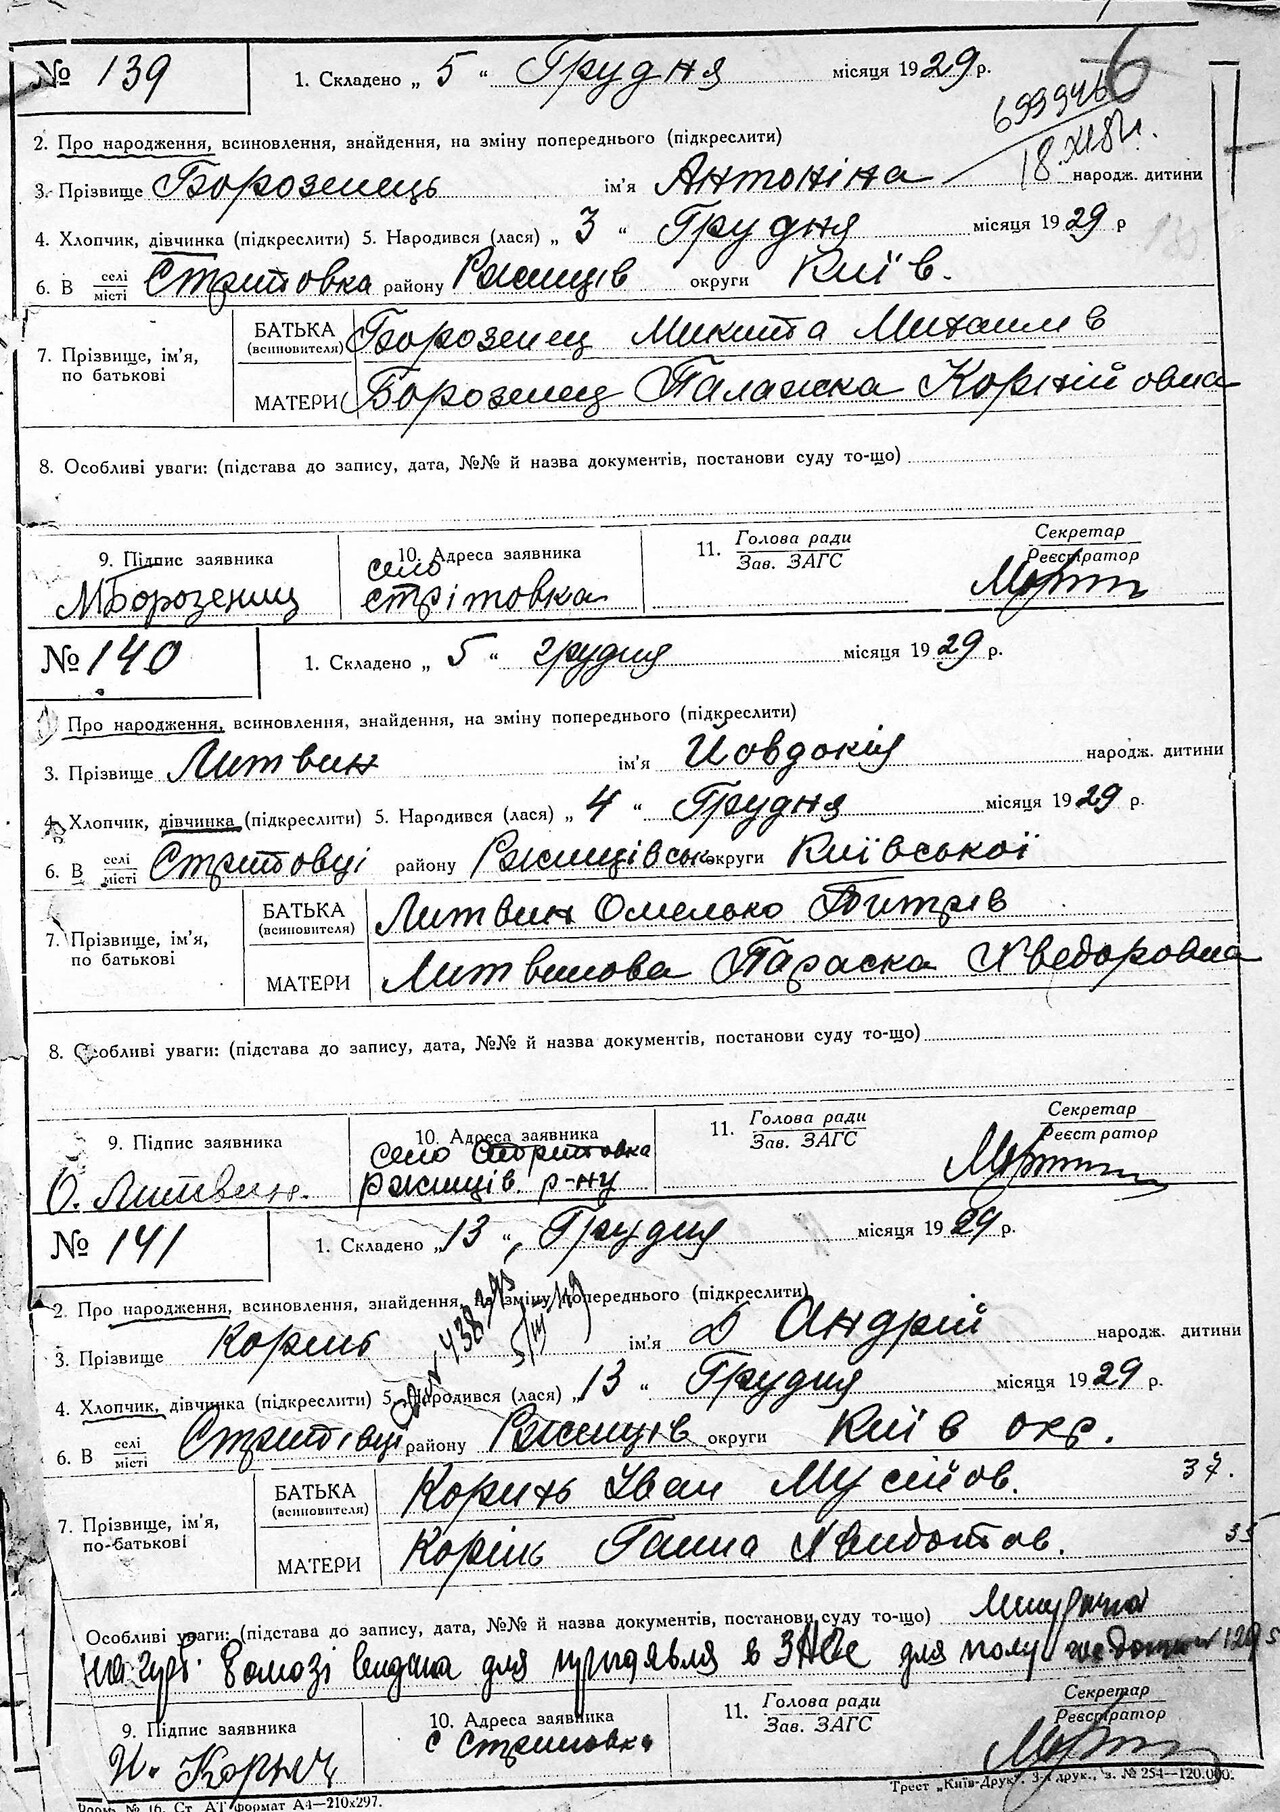 6
№ 139 1. Складено „ 5 “ Грудня місяця 1929 р.
699946
18 XI 81 г.
2. Про народження, всиновлення, знайдення, на зміну попереднього (підкреслити)
3. Прізвище Борозенець ім'я Антоніна народж. дитини
4. Хлопчик, дівчинка (підкреслити) 5. Народився (лася) „ 3 “ Грудня місяця 1929 р
6. В селі місті Стритовка району Ржищів округи Київ.
7. Прізвище, ім'я, по батькові
БАТЬКА (всиновителя) Борозенец Микита Михайлів
МАТЕРИ Борозенец Палажка Корнійовна
8. Особливі уваги: (підстава до запису, дата, №№ й назва документів, постанови суду то-що)
9. Підпис заявника 10. Адреса заявника 11. Голова ради Зав. ЗАГС Секретар Реєстратор
МБорозенец село стрітовка
№ 140 1. Складено „ 5 “ грудня місяця 1929 р.
Про народження, всиновлення, знайдення, на зміну попереднього (підкреслити)
3. Прізвище Литвин ім'я Йовдокія народж. дитини
4. Хлопчик, дівчинка (підкреслити) 5. Народився (лася) „ 4 “ Грудня місяця 1929 р.
6. В селі місті Стритовці району Ржищівськ округи Київської
7. Прізвище, ім'я, по батькові
БАТЬКА (всиновителя) Литвин Омелько
МАТЕРИ Литвинова Параска Хведоровна
8. Особливі уваги: (підстава до запису, дата, №№ й назва документів, постанови суду то-що)
9. Підпис заявника 10. Адреса заявника 11. Голова ради Зав. ЗАГС Секретар Реєстратор
О. Литвин. село Стритовка
ржищів. р-ну
№ 141 1. Складено „ 13 “ Грудня місяця 1929 р.
2. Про народження, всиновлення, знайдення, на зміну попереднього (підкреслити)
3. Прізвище Корінь ім'я Андрій народж. дитини
4. Хлопчик, дівчинка (підкреслити) 5. Народився (лася) „ 13 “ Грудня місяця 1929 р.
6. В селі місті Стритівці району Ржищів округи Київ окр.
7. Прізвище, ім'я, по-батькові
БАТЬКА (всиновителя) Коринь Іван Мусійов. 37.
МАТЕРИ Корінь Ганна 35
Особливі уваги: (підстава до запису, дата, №№ й назва документів, постанови суду то-що)
видана для в ЗАГС для
9. Підпис заявника 10. Адреса заявника 11. Голова ради Зав. ЗАГС Секретар Реєстратор
с Стритовка
Форм. № 16. Ст. АТ формат А4—210х297. Трест „Київ-Друк“. 3-я друк., з. № 254—120.000.